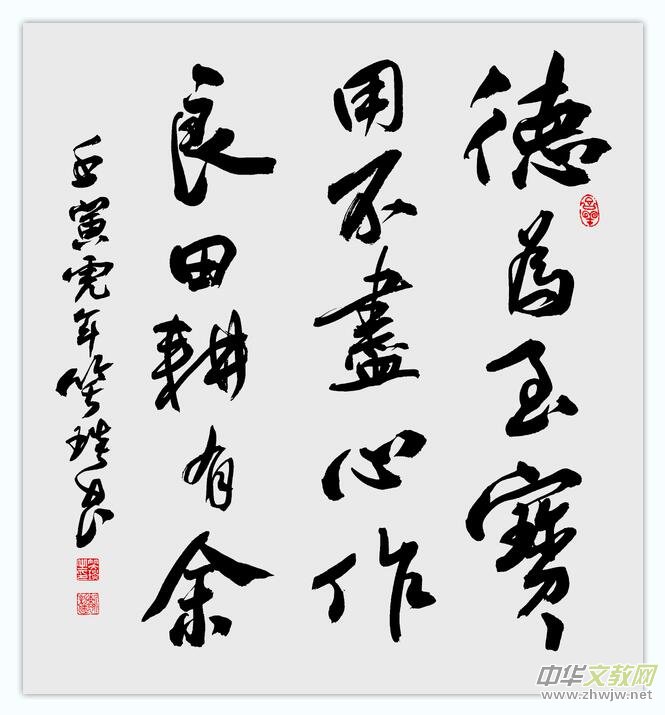 德為至寶
用不盡心作
良田耕有余
壬寅虎年笑琰书
中华文教网
www.zhwjw.net